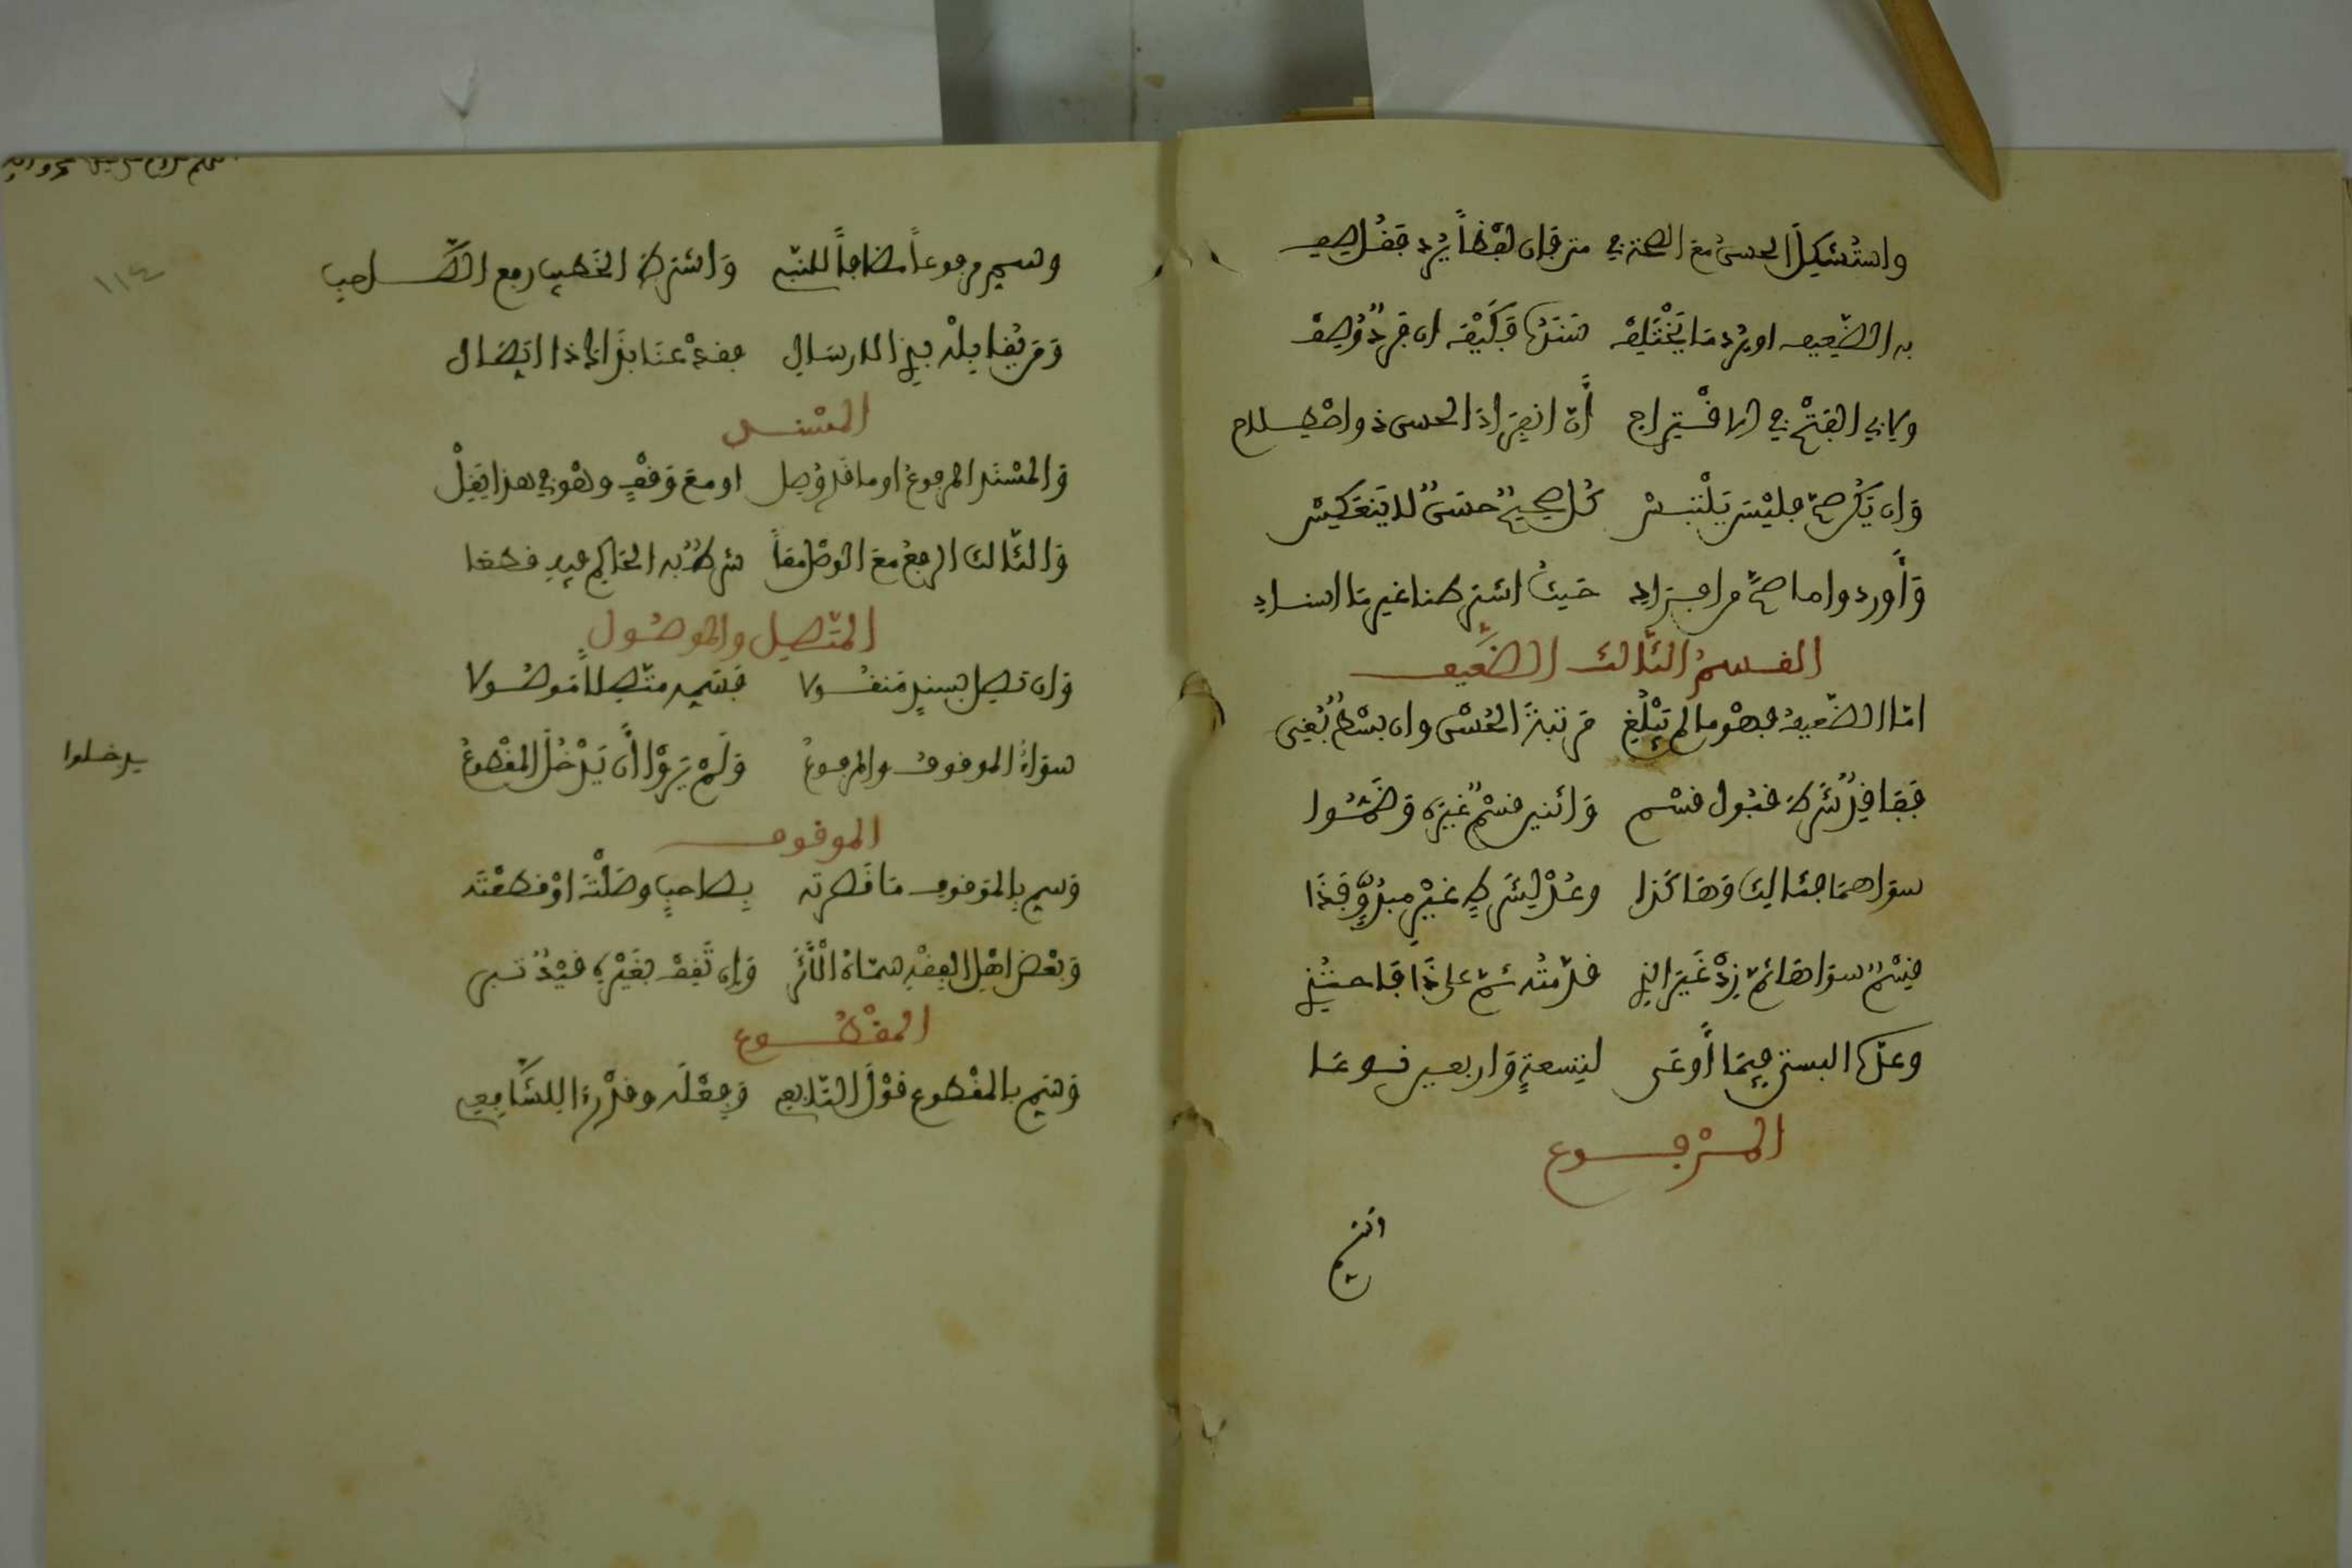 واستُشكِلَ الحسنُ مع الصحة في متن فإن لفظاً يُرد فقُل صِف
به الضَّعيف او يرد ما يَخْتَلِفْ سَنَدُه فكَيْفَ ان فردٌ وُصِفْ
ولابي الفَتْح في الاقْتِراح أنَّ انفِرادَ الحسن ذو اصْطِلاح
وَان يَكُن صحَّ فليْسَ يَلْتَبِسْ كُل صحيحٍ حسَنٌ لا يَنعَكِسْ
وَأوردوا ما صحَّ من افرادِ حَيثُ اشترطنا غير ما اسنادِ
القسمُ الثَّالث الضَّعيف
امَّا الضَّعيفُ فهْو ما لم يَبْلُغِ مَرتبةَ الحُسْن وان بسْطٌ بُغِي
فَفاقِدٌ شَرطَ قبُول قسْم وَاثنين قسْمٌ غيرُه وَضَمُّوا
سواهما فثالث وَهاكذا وعُدْ لِشَرطٍ غَيْرِ مبدُوٍّ فَذَا
قِسْمٌ سواها ثمَّ زِدْ غَيرَ الذِي قدَّمتُه ثمَّ على ذَا فاحتذِي
وعدَّه البستي فِيمَا أوعَى لِتِسعةٍ وَاربعين نوعا
المرفوع
وسم مرفوعاً مضافاً للنبي وَاشترط الخَطيب رفع الصَّاحب
وَمن يُقابله بِذي الارسَالِ فقد عنَا بذَاك ذا اتِّصَال
المسْند
وَالمسْنَد المرفوعُ او ما قَد وُصِل او معَ وَقفٍ وهْو في هذا يَقِلْ
وَالثَّالث الرفعُ معَ الوصْل معَاً شرطٌ به الحَاكِم فيهِ قطعَا
المتَّصِل والموصُول
وَان تصِل بسندٍ مَنقُولا فسَمِّه متَّصلاً مَوصُولا
سوَاءُ الموقوف والمرفوعُ وَلَمْ يَرَوْا أن يَدْخُلَ المقْطوعُ
يدخلوا
الموقوف
وَسم بالمَوقوف ما قَصرته بِصاحبٍ وصَلْتَ اوْ قطعْتَه
وَبعْضُ اهْلِ الفِقْهِ سمَّاهُ الْأَثَر وَإن تَقِفْ بغَيْرِه قيِّدْ تبر
المقْطُوع
وَسَم بالمقْطوع قوْلَ التَّابعي وَفِعْلَه وقدْ رءا للشَّافِعي
١١٤